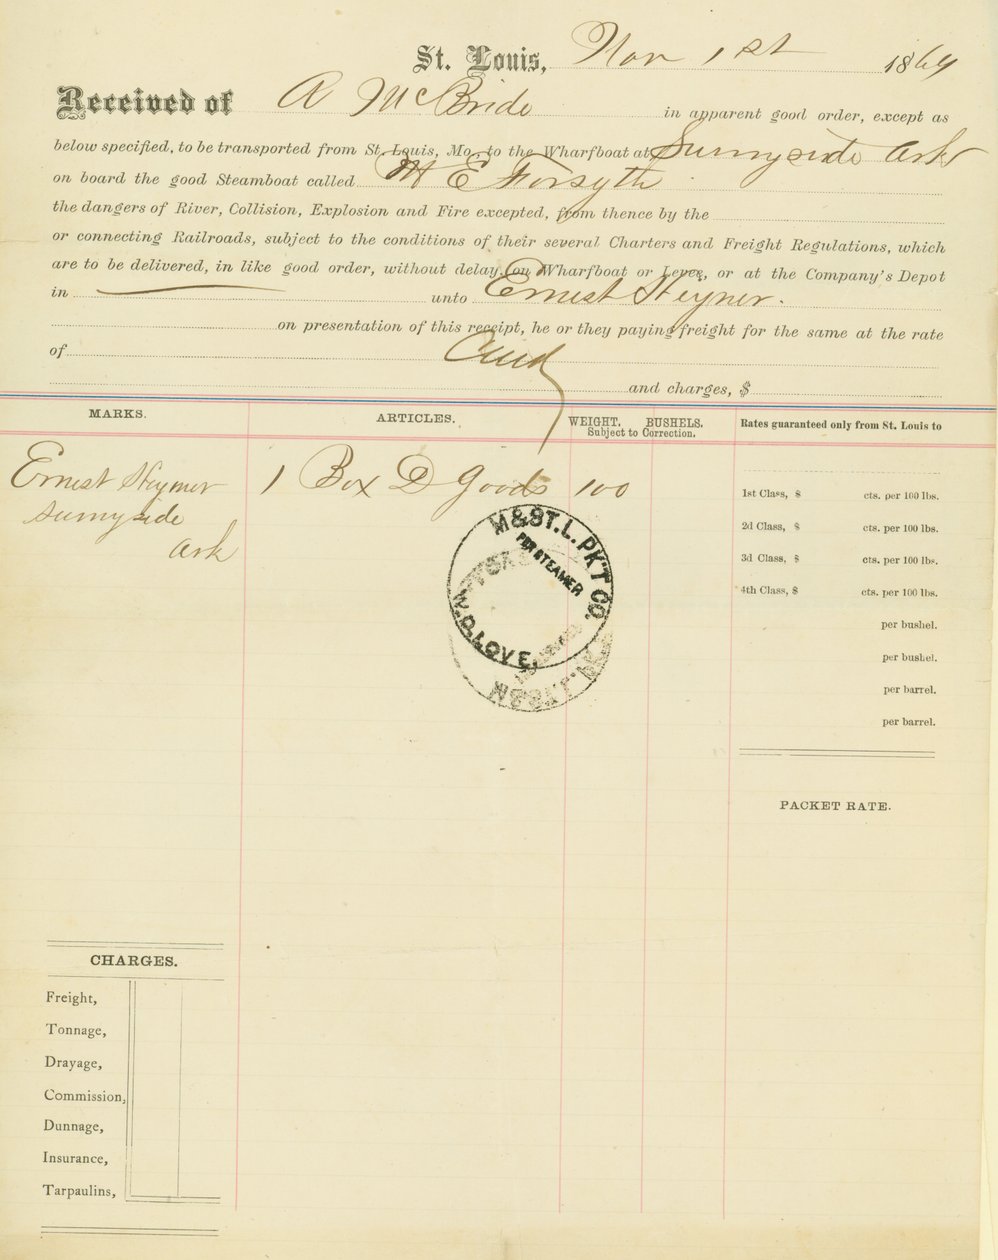 St. Louis, Nov 1st 1869
Received of A McBride in apparent good order, except as
below specified, to be transported from St. Louis, Mo. to the Wharfboat at Sunnyside Ark
on board the good Steamboat called M E Forsyth
the dangers of River, Collision, Explosion and Fire excepted, from thence by the
or connecting Railroads, subject to the conditions of their several Charters and Freight Regulations, which
are to be delivered, in like good order, without delay, on Wharfboat or Levee, or at the Company's Depot
in unto Ernest Heyner.
on presentation of this receipt, he or they paying freight for the same at the rate
of
and charges, $
MARKS. ARTICLES. WEIGHT. BUSHELS. Rates guaranteed only from St. Louis to
Subject to Correction.
Ernest Heymer 1 Box D Goods 100
Sunnyside
Ark
1st Class, $ cts. per 100 lbs.
2d Class, $ cts. per 100 lbs.
3d Class, $ cts. per 100 lbs.
4th Class, $ cts. per 100 lbs.
per bushel.
per bushel.
per barrel.
per barrel.
M & ST. L. PKT CO.
PER STEAMER
W.D. LOVE.
PACKET RATE.
CHARGES.
Freight,
Tonnage,
Drayage,
Commission,
Dunnage,
Insurance,
Tarpaulins,